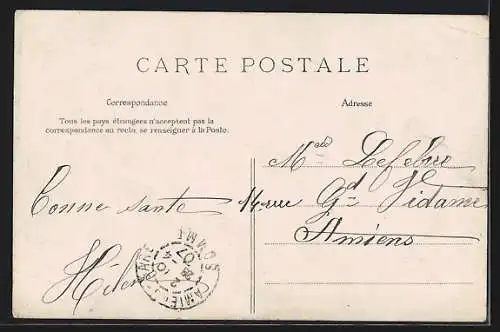 CARTE POSTALE
Correspondance
Adresse
Tous les pays étrangers n'acceptent pas la
correspondance au recto, se renseigner à la Poste.
Mᵉˡˡᵉ Lefebvre
Bonne santé
14 rue Gd Vidame
Amiens
Hélène
AMIENS
SOMME
07